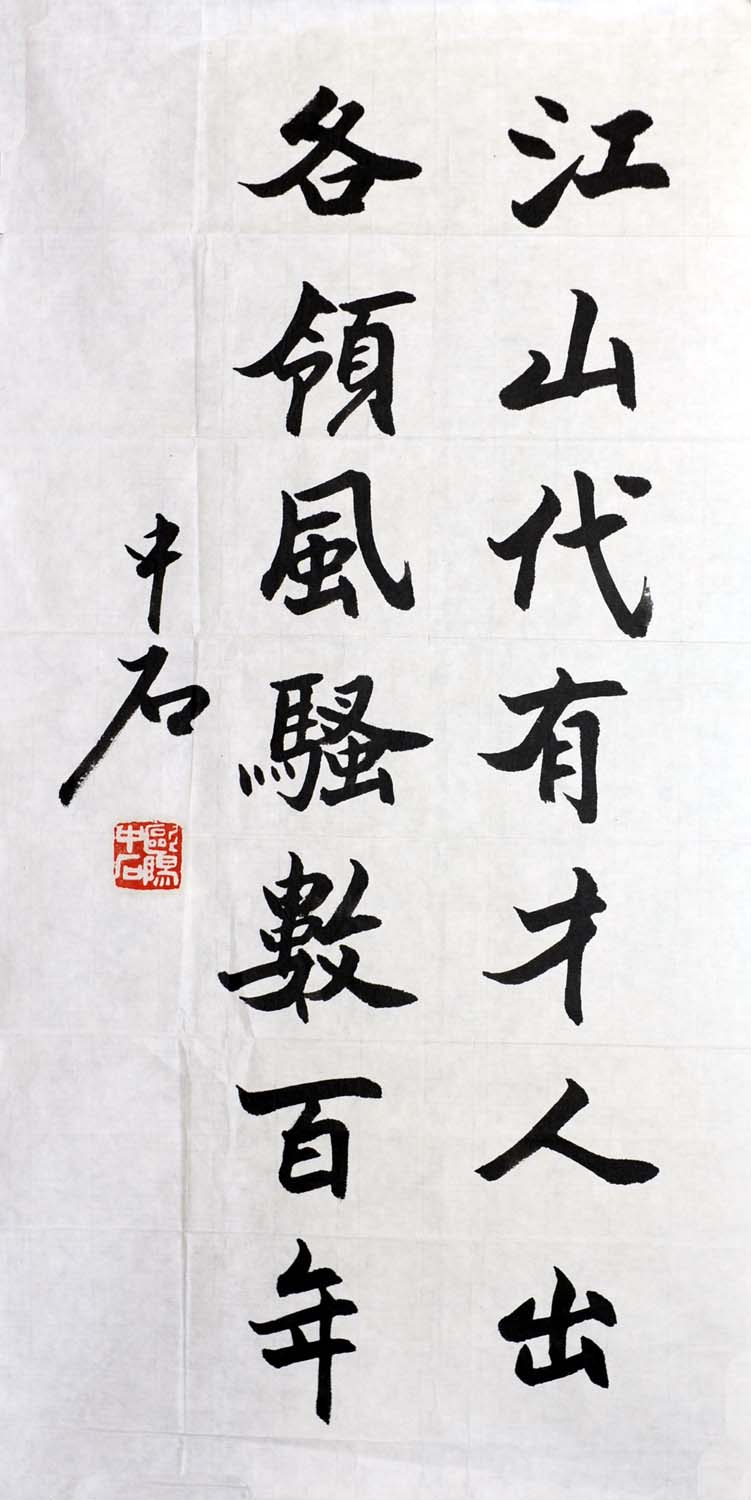 江山代有才人出
各領風騷數百年
中石
歐陽中石